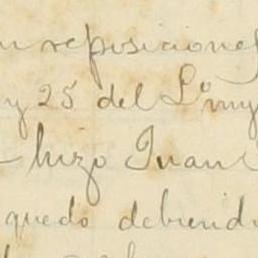 reposiciones
y 25 del
hizo Juan
quedo debiend